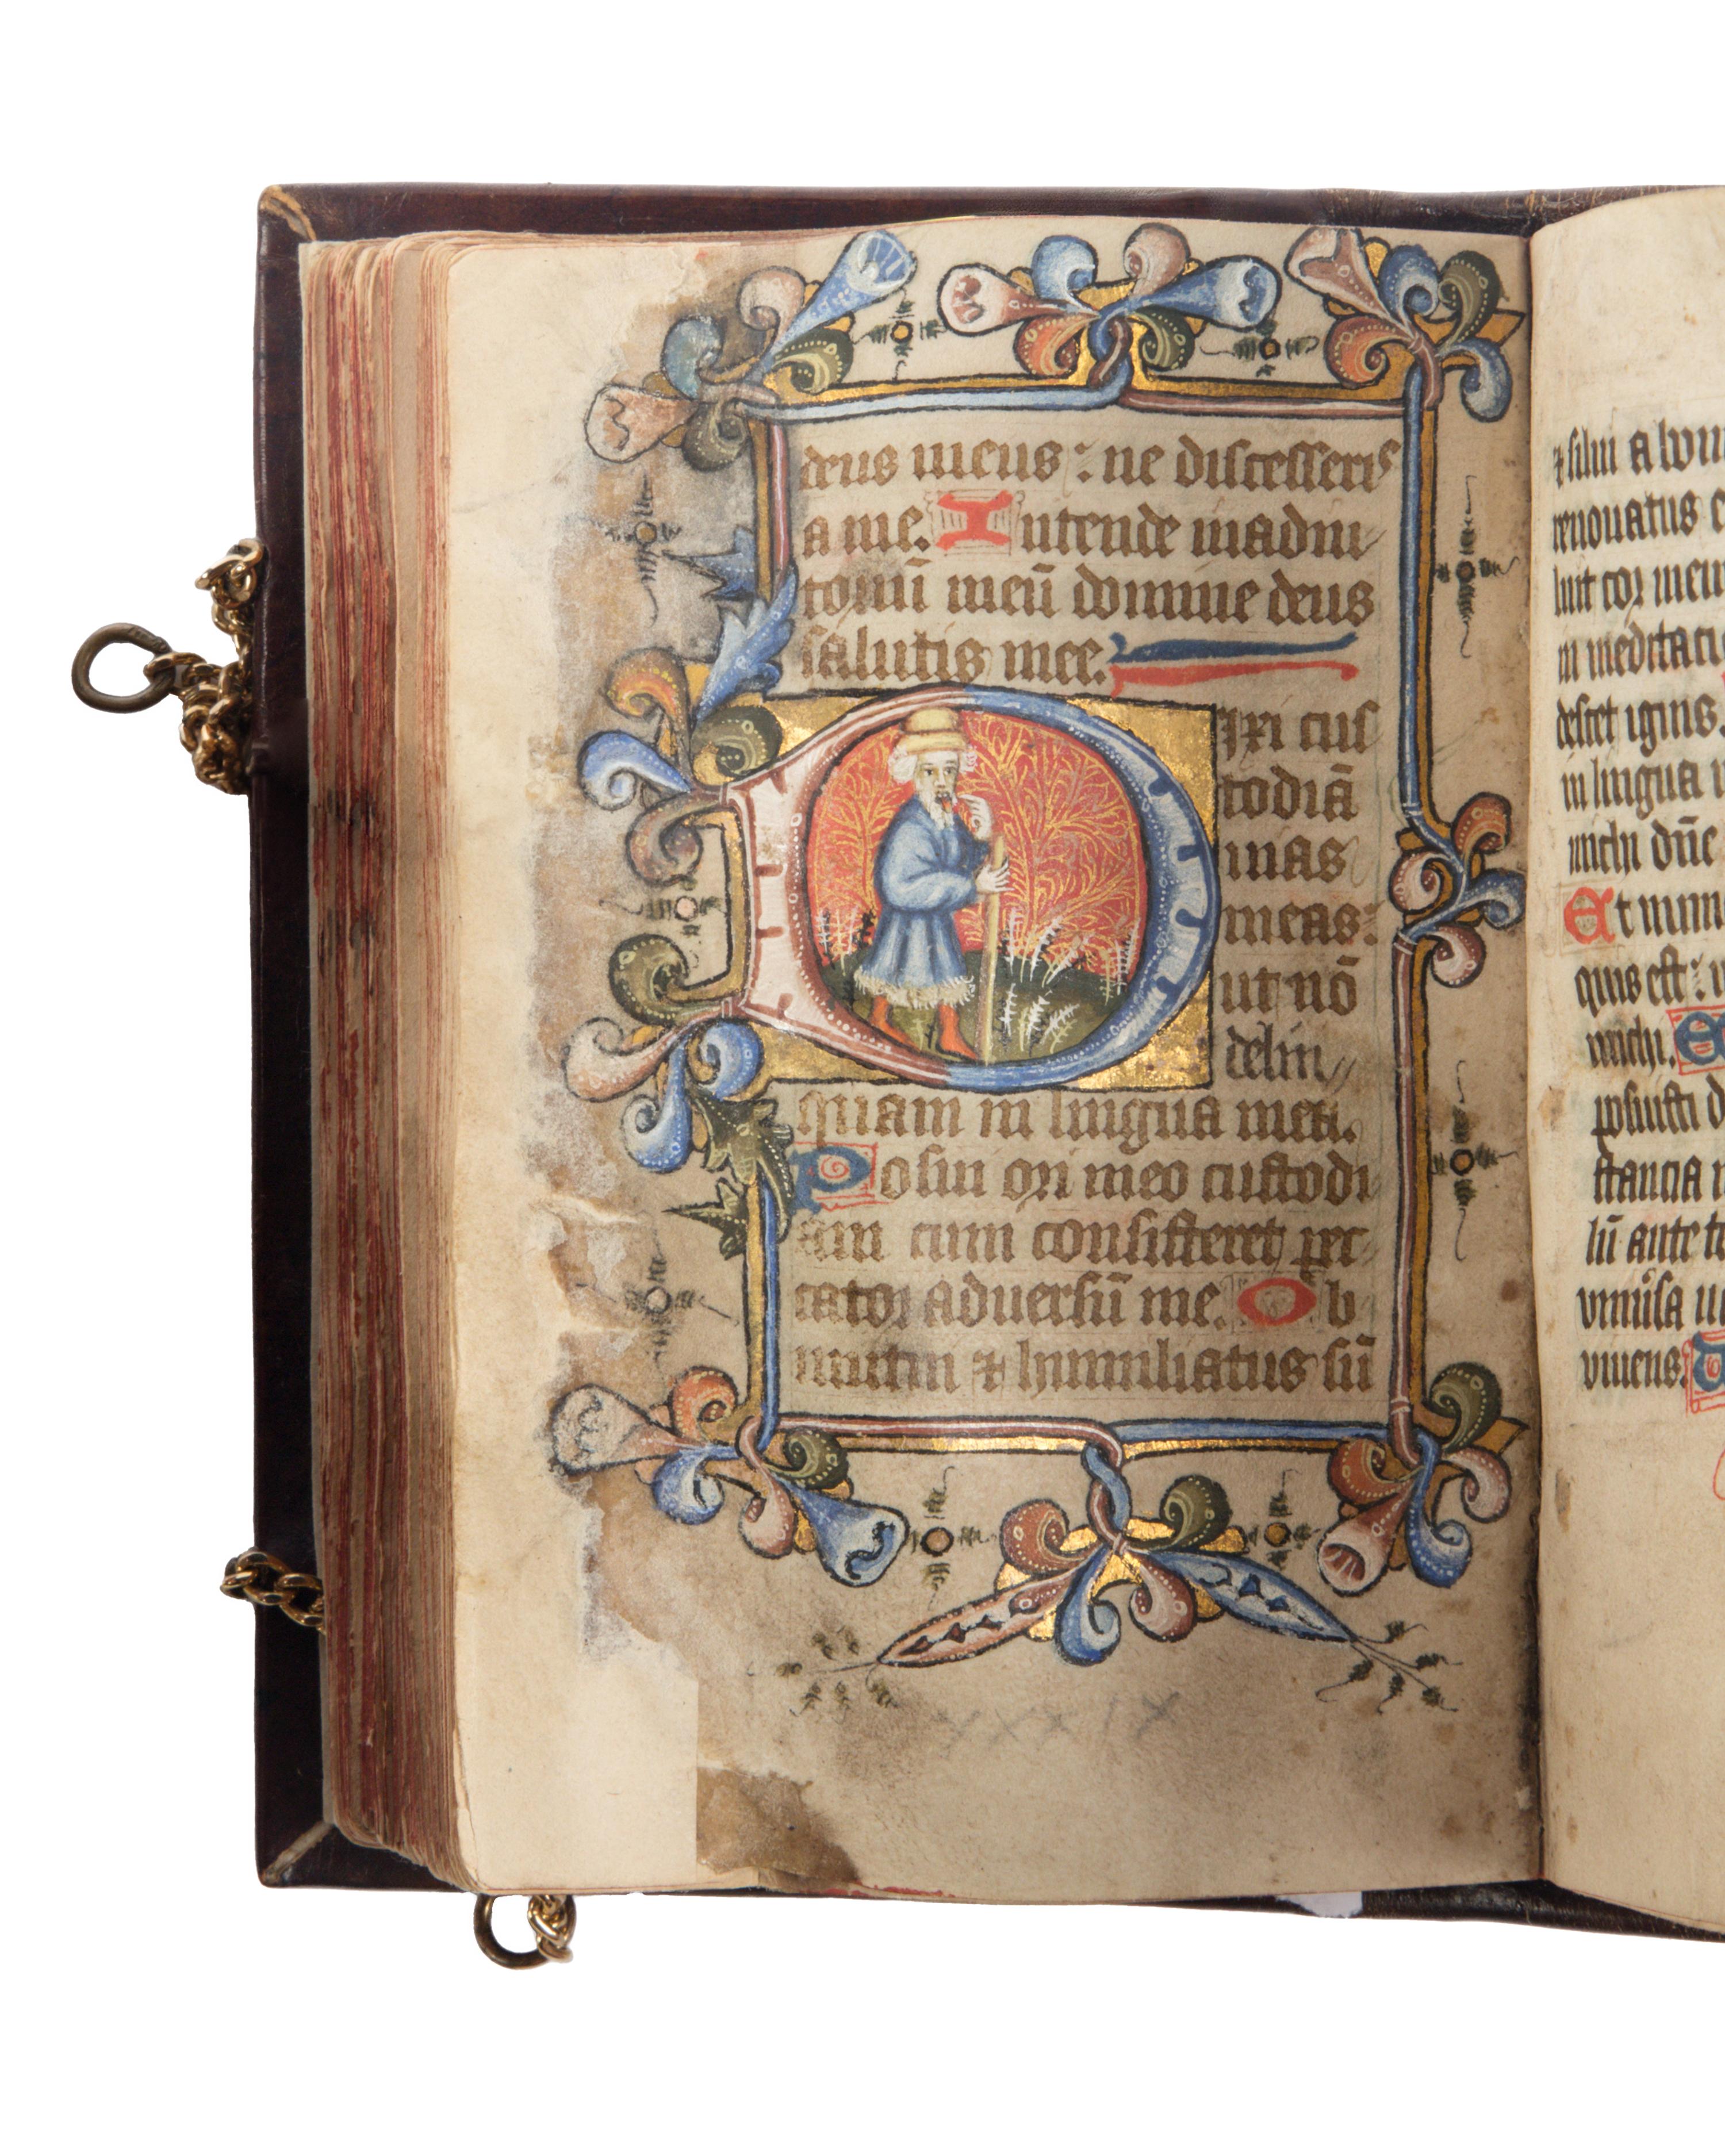 deus meus : ne discesseris
a me. Intende in adiu
toriū meū domine deus
salutis mee.
Dixi cus
todiā
uias
meas :
ut nō
delin
quam in lingua mea.
Posui ori meo custodi
am cum consisteret pec
cator aduersū me. Ob
mutui ⁊ humiliatus sū
XXXIX
⁊ silui a
renouatus
luit cor meu
in meditaci
descet ignis.
in lingua
michi dn̄e
Et num
quis est :
michi.
posuisti d
stancia
lū ante
uniūsa
uiuens.